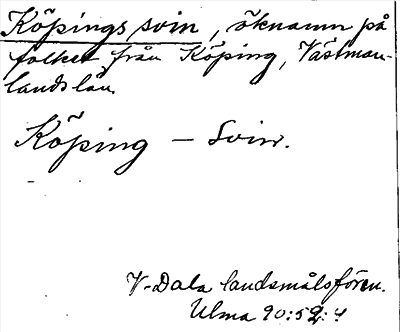 Köpings svin, öknamn på
folket från Köping, Västman-
lands län.
Köping - Svin.
V-Dala landsmålsfören.
Ulma 90:52:4